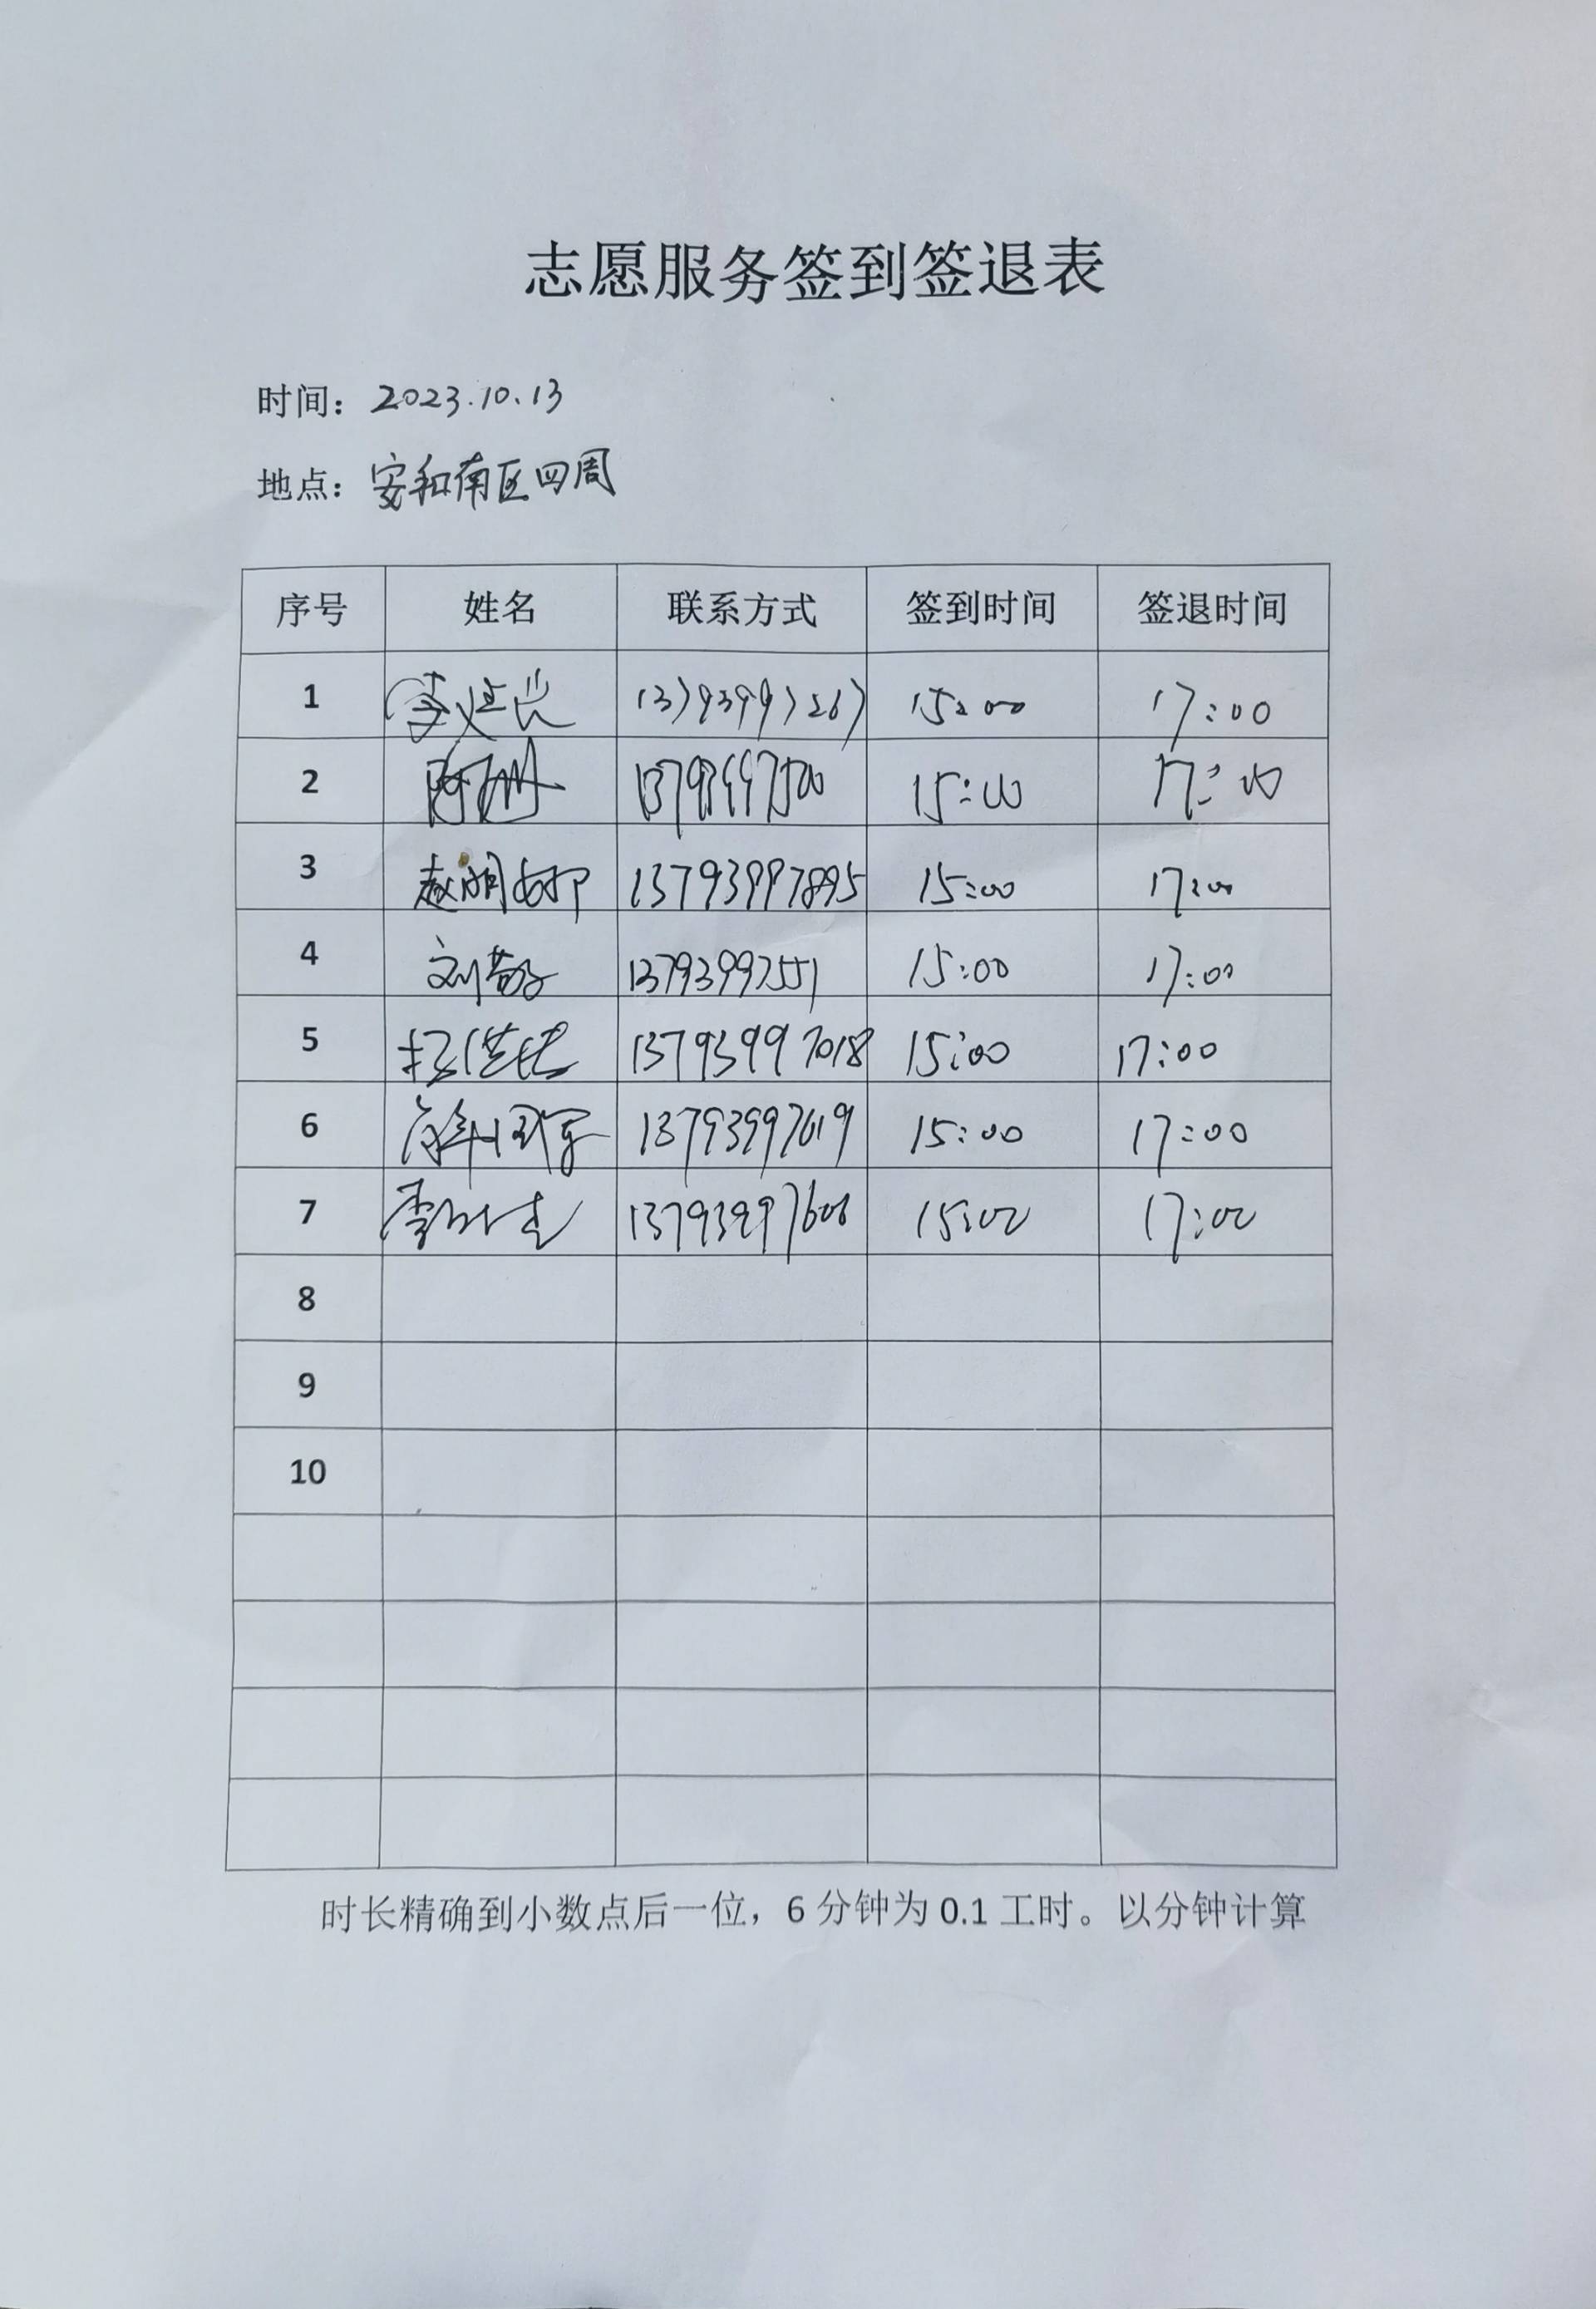 志愿服务签到签退表
时间：2023.10.13
地点：安和南区四周
序号 姓名 联系方式 签到时间 签退时间
1 李延长 13793997267 15:00 17:00
2 13793997500 15:00 17:00
3 13793997895 15:00 17:00
4 刘 13793997551 15:00 17:00
5 13793997018 15:00 17:00
6 13793997619 15:00 17:00
7 李 13793997606 15:00 17:00
8
9
10
时长精确到小数点后一位，6 分钟为 0.1 工时。以分钟计算